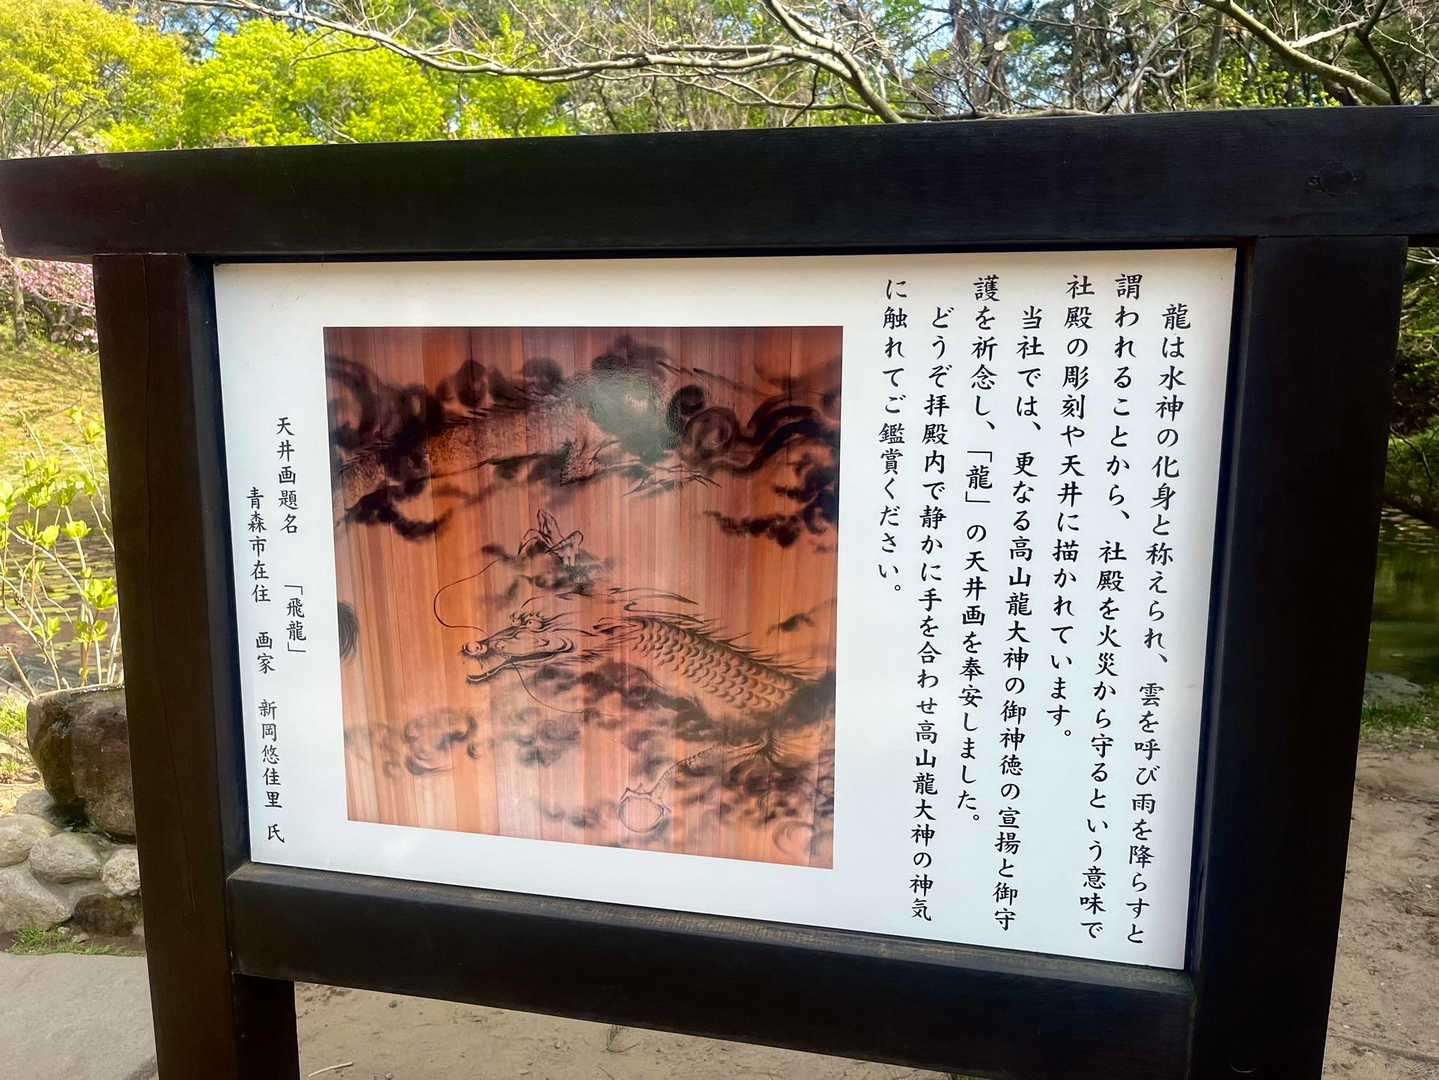 龍は水神の化身と称えられ、雲を呼び雨を降らすと
謂われることから、社殿を火災から守るという意味で
社殿の彫刻や天井に描かれています。
当社では、更なる高山龍大神の御神徳の宣揚と御守
護を祈念し、「龍」の天井画を奉安しました。
どうぞ拝殿内で静かに手を合わせ高山龍大神の神気
に触れてご鑑賞ください。
天井画題名　「飛龍」
青森市在住　画家　新岡悠佳里 氏